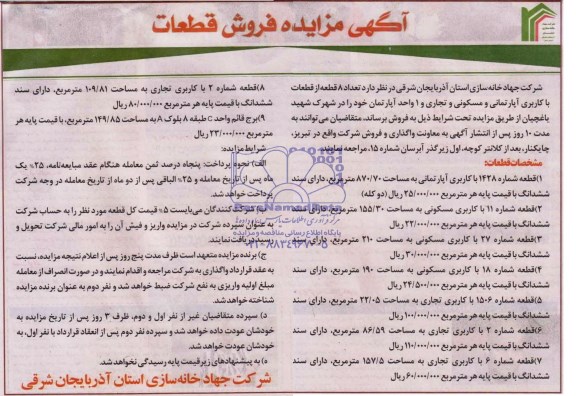 آگهی مزایده فروش قطعات
شرکت جهاد خانه‌سازی استان آذربایجان شرقی در نظر دارد تعداد ۸ قطعه از قطعات
با کاربری آپارتمانی و مسکونی و تجاری و ۱ واحد آپارتمان خود را در شهرک شهید
باغچیان از طریق مزایده تحت شرایط ذیل به فروش برساند، متقاضیان می‌توانند به
مدت ۱۰ روز پس از انتشار آگهی به معاونت واگذاری و فروش شرکت واقع در تبریز،
چایکنار، بعد از کلانتر کوچه، اول زیرگذر آبرسان شماره ۱۵، مراجعه نمایند.
مشخصات قطعات:
۱)قطعه شماره ۱۴۳۸ با کاربری آپارتمانی به مساحت ۸۷۰/۷۰ مترمربع، دارای سند
ششدانگ با قیمت پایه هر مترمربع ۲۵/۰۰۰/۰۰۰ ریال (دو کله)
۲)قطعه شماره ۱۱ با کاربری مسکونی به مساحت ۱۵۵/۳۰ مترمربع، دارای سند
ششدانگ با قیمت پایه هر مترمربع ۲۲/۰۰۰/۰۰۰ ریال
۳)قطعه شماره ۲۷ با کاربری مسکونی به مساحت ۲۱۰ مترمربع، دارای سند
ششدانگ با قیمت پایه هر مترمربع ۳۰/۰۰۰/۰۰۰ ریال
۴)قطعه شماره ۱۸ با کاربری مسکونی به مساحت ۱۹۰ مترمربع، دارای سند
ششدانگ با قیمت پایه هر مترمربع ۲۴/۵۰۰/۰۰۰ ریال
۵)قطعه شماره ۱۵۰۶ با کاربری تجاری به مساحت ۲۲/۰۵ مترمربع، دارای سند
ششدانگ با قیمت پایه هر مترمربع ۱۰۰/۰۰۰/۰۰۰ ریال
۶)قطعه شماره ۲ با کاربری تجاری به مساحت ۸۶/۵۹ مترمربع، دارای سند
ششدانگ با قیمت پایه هر مترمربع ۱۱۰/۰۰۰/۰۰۰ ریال
۷)قطعه شماره ۶ با کاربری تجاری به مساحت ۱۵۷/۵ مترمربع، دارای سند
ششدانگ با قیمت پایه هر مترمربع ۶۰/۰۰۰/۰۰۰ ریال
۸)قطعه شماره ۲ با کاربری تجاری به مساحت ۱۰۹/۸۱ مترمربع، دارای سند
ششدانگ با قیمت پایه هر مترمربع ۸۰/۰۰۰/۰۰۰ ریال
۹)برج قائم واحد C طبقه ۸ بلوک A به مساحت ۱۴۹/۸۵ مترمربع، با قیمت پایه هر
مترمربع ۲۳/۰۰۰/۰۰۰ ریال
شرایط مزایده:
الف) نحوه پرداخت: پنجاه درصد ثمن معامله هنگام عقد مبایعه‌نامه، ۲۵٪ یک
ماه پس از تاریخ معامله و ۲۵٪ الباقی پس از دو ماه از تاریخ معامله در وجه شرکت
پرداخت خواهد شد.
ب) شرکت کنندگان می‌بایست ۵٪ قیمت کل قطعه مورد نظر را به حساب شرکت
به عنوان سپرده شرکت در مزایده واریز و فیش آن را به امور مالی شرکت تحویل و
رسید دریافت نمایند.
ج) برنده مزایده متعهد است ظرف مدت پنج روز پس از اعلام نتیجه مزایده، نسبت
به عقد قرارداد واگذاری به شرکت مراجعه و اقدام نمایند و در صورت انصراف از معامله
مبلغ اولیه واریزی به نفع شرکت ضبط خواهد شد و نفر دوم به عنوان برنده مزایده
شناخته خواهد شد.
د) سپرده متقاضیان غیر از نفر اول و دوم، ظرف ۳ روز پس از تاریخ مزایده به
خودشان عودت داده خواهد شد و سپرده نفر دوم پس از انعقاد قرارداد با نفر اول، به
خودشان عودت خواهد شد.
ه) به پیشنهادهای زیر قیمت پایه رسیدگی نخواهد شد.
شرکت جهاد خانه‌سازی استان آذربایجان شرقی